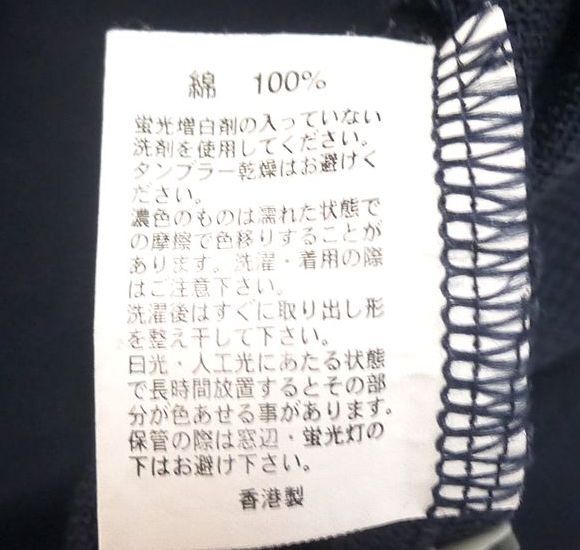 綿 100%
蛍光増白剤の入っていない
洗剤を使用してください。
タンブラー乾燥はお避けく
ださい。
濃色のものは濡れた状態で
の摩擦で色移りすることが
あります。洗濯・着用の際
はご注意下さい。
洗濯後はすぐに取り出し形
を整え干して下さい。
日光・人工光にあたる状態
で長時間放置するとその部
分が色あせる事があります。
保管の際は窓辺・蛍光灯の
下はお避け下さい。
香港製